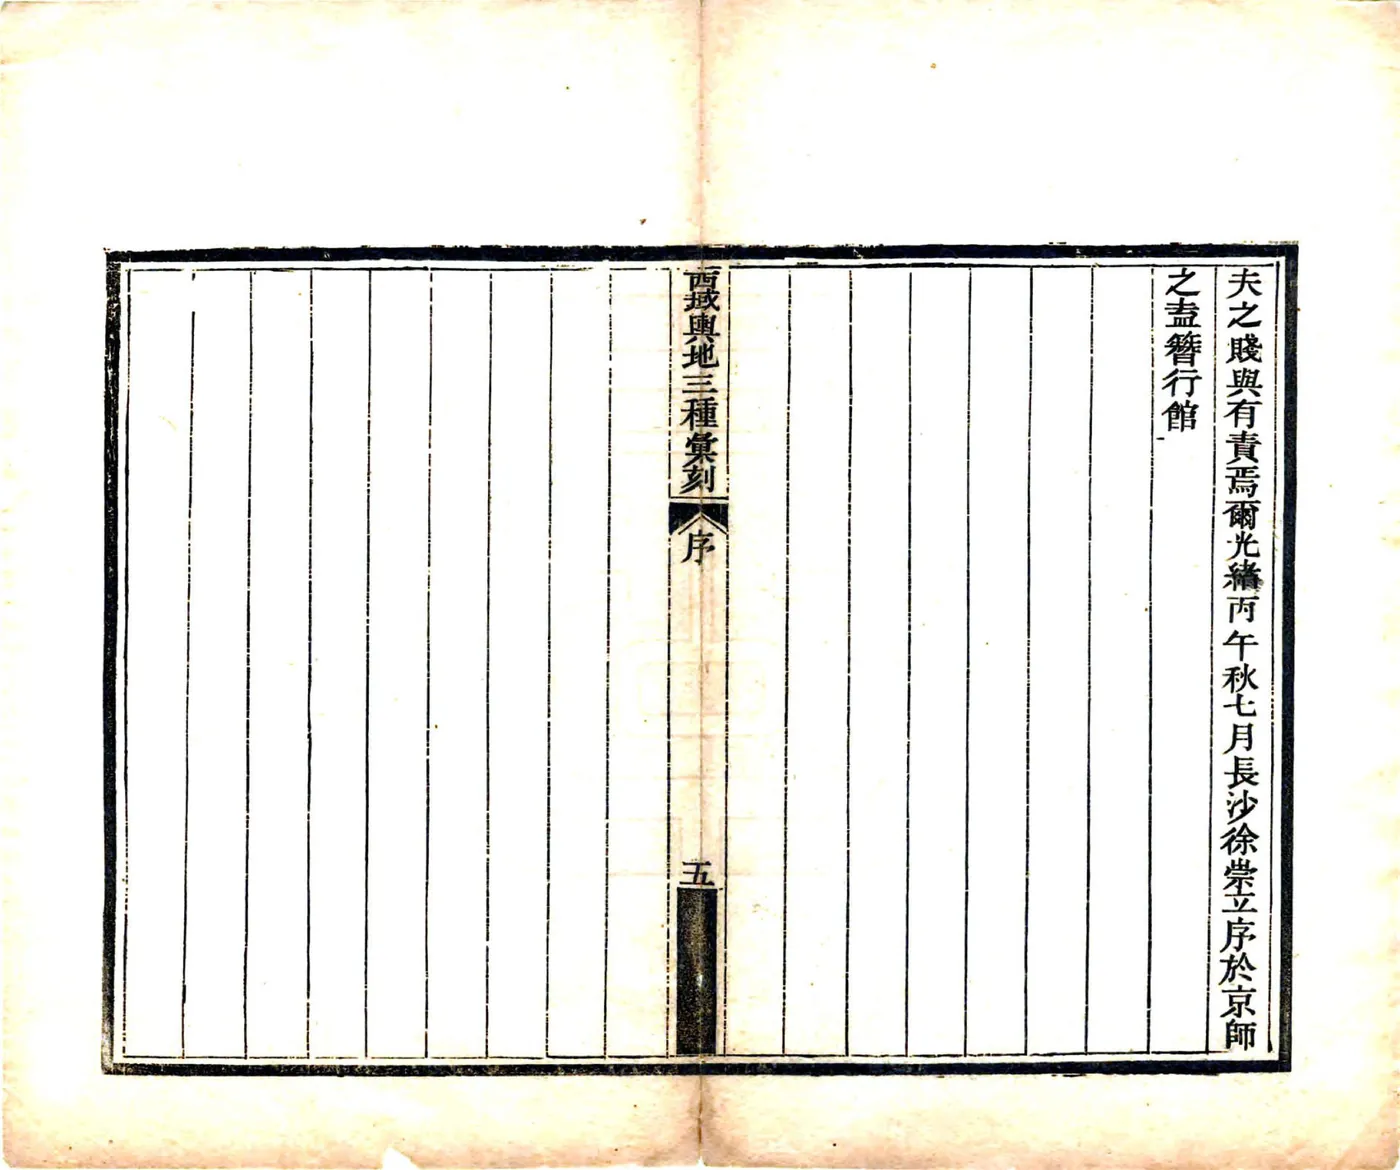 夫之賤與有責焉爾光緒丙午秋七月長沙徐崇立序於京師
之盍簪行館
西域輿地三種彙刻
序
五